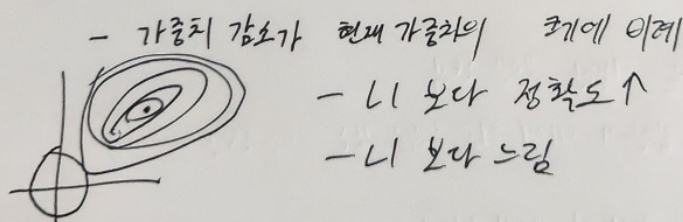 - 가중치 감소가 현재 가중치의 크기에 비례
- L1 보다 정확도↑
- L1 보다 느림